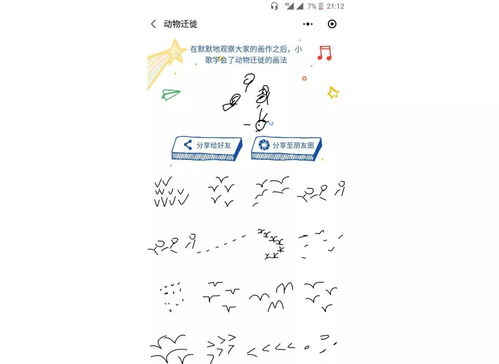 7% 21:12
动物迁徙
在默默地观察大家的画作之后，小
歌学会了动物迁徙的画法
分享给好友
分享至朋友圈